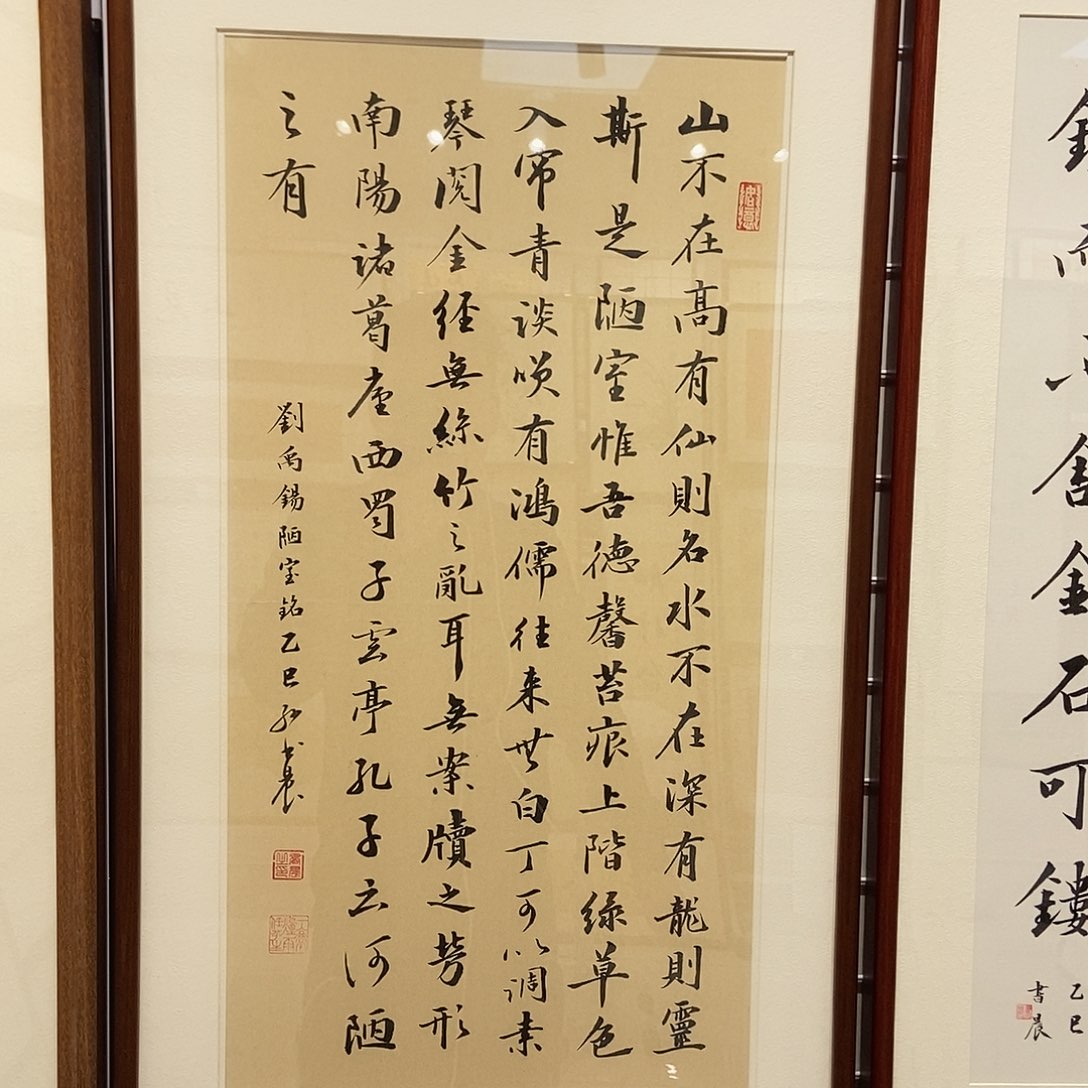 鍥而不舍金石可鏤
乙巳
書晨
山不在高有仙則名水不在深有龍則靈
斯是陋室惟吾德馨苔痕上階綠草色
入帘青談笑有鴻儒往来無白丁可以調素
琴閱金經無絲竹之亂耳無案牘之勞形
南陽諸葛廬西蜀子雲亭孔子云何陋
之有
劉禹錫陋室銘乙巳孙書晨